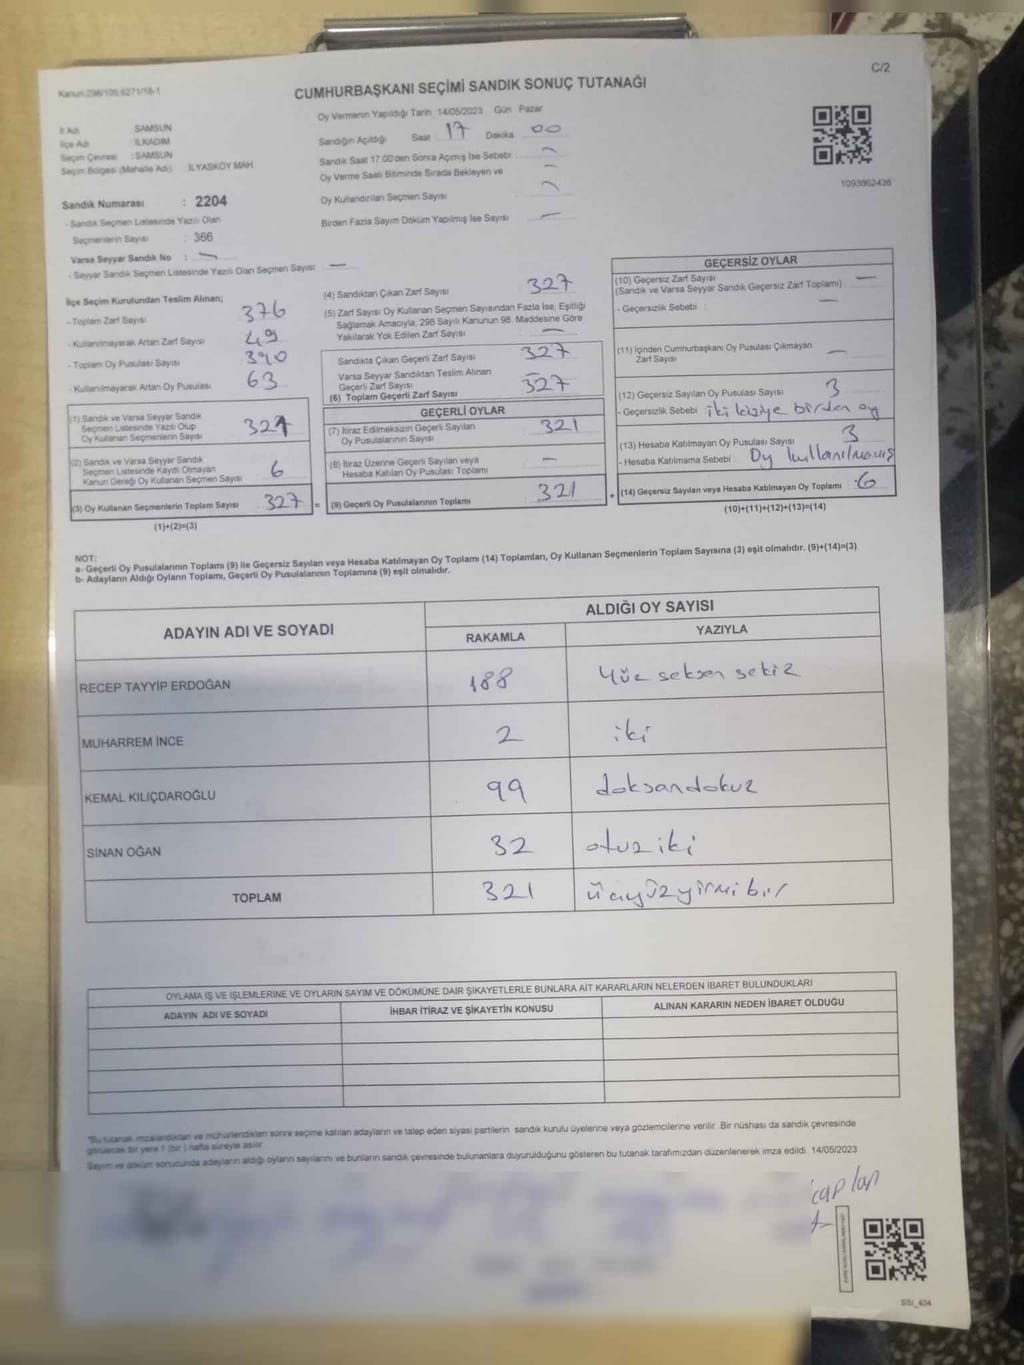 C/2
Kanun:298/105;6271/18-1
CUMHURBAŞKANI SEÇİMİ SANDIK SONUÇ TUTANAĞI
Oy Vermenin Yapıldığı Tarih 14/05/2023 Gün Pazar
İl Adı SAMSUN
İlçe Adı : İLKADIM
Seçim Çevresi : SAMSUN
Seçim Bölgesi (Mahalle Adı) İLYASKÖY MAH.
Sandığın Açıldığı Saat 17 Dakika 00
Sandık Saat 17.00'den Sonra Açımış İse Sebebi : —
Oy Verme Saati Bitiminde Sırada Bekleyen ve —
Oy Kullandırılan Seçmen Sayısı —
Birden Fazla Sayım Döküm Yapılmış İse Sayısı —
1093862436
Sandık Numarası : 2204
- Sandık Seçmen Listesinde Yazılı Olan
Seçmenlerin Sayısı : 366
Varsa Seyyar Sandık No : —
- Seyyar Sandık Seçmen Listesinde Yazılı Olan Seçmen Sayısı —
İlçe Seçim Kurulundan Teslim Alınan;
- Toplam Zarf Sayısı 376
- Kullanılmayarak Artan Zarf Sayısı 49
- Toplam Oy Pusulası Sayısı 390
- Kullanılmayarak Artan Oy Pusulası 63
(1) Sandık ve Varsa Seyyar Sandık
Seçmen Listesinde Yazılı Olup
Oy Kullanan Seçmenlerin Sayısı 321
(2) Sandık ve Varsa Seyyar Sandık
Seçmen Listesinde Kaydı Olmayan
Kanun Gereği Oy Kullanan Seçmen Sayısı 6
(3) Oy Kullanan Seçmenlerin Toplam Sayısı 327 =
(1)+(2)=(3)
(4) Sandıktan Çıkan Zarf Sayısı 327
(5) Zarf Sayısı Oy Kullanan Seçmen Sayısından Fazla İse, Eşitliği
Sağlamak Amacıyla, 298 Sayılı Kanunun 98. Maddesine Göre
Yakılarak Yok Edilen Zarf Sayısı —
Sandıkta Çıkan Geçerli Zarf Sayısı 327
Varsa Seyyar Sandıktan Teslim Alınan
Geçerli Zarf Sayısı —
(6) Toplam Geçerli Zarf Sayısı 327
GEÇERLİ OYLAR
(7) İtiraz Edilmeksizin Geçerli Sayılan
Oy Pusulalarının Sayısı 321
(8) İtiraz Üzerine Geçerli Sayılan veya
Hesaba Katılan Oy Pusulası Toplamı —
(9) Geçerli Oy Pusulalarının Toplamı 321 +
GEÇERSİZ OYLAR
(10) Geçersiz Zarf Sayısı —
(Sandık ve Varsa Seyyar Sandık Geçersiz Zarf Toplamı)
- Geçersizlik Sebebi : —
(11) İçinden Cumhurbaşkanı Oy Pusulası Çıkmayan
Zarf Sayısı —
(12) Geçersiz Sayılan Oy Pusulası Sayısı 3
- Geçersizlik Sebebi : iki kişiye birden oy
(13) Hesaba Katılmayan Oy Pusulası Sayısı 3
- Hesaba Katılmama Sebebi : Oy kullanılmamış
(14) Geçersiz Sayılan veya Hesaba Katılmayan Oy Toplamı 6
(10)+(11)+(12)+(13)=(14)
NOT:
a- Geçerli Oy Pusulalarının Toplamı (9) ile Geçersiz Sayılan veya Hesaba Katılmayan Oy Toplamı (14) Toplamları, Oy Kullanan Seçmenlerin Toplam Sayısına (3) eşit olmalıdır. (9)+(14)=(3)
b- Adayların Aldığı Oyların Toplamı, Geçerli Oy Pusulalarının Toplamına (9) eşit olmalıdır.
ADAYIN ADI VE SOYADI
ALDIĞI OY SAYISI
RAKAMLA YAZIYLA
RECEP TAYYİP ERDOĞAN 188 Yüz seksen sekiz
MUHARREM İNCE 2 iki
KEMAL KILIÇDAROĞLU 99 doksandokuz
SİNAN OĞAN 32 otuz iki
TOPLAM 321 üçyüzyirmi bir
OYLAMA İŞ VE İŞLEMLERİNE VE OYLARIN SAYIM VE DÖKÜMÜNE DAİR ŞİKAYETLERLE BUNLARA AİT KARARLARIN NELERDEN İBARET BULUNDUKLARI
ADAYIN ADI VE SOYADI İHBAR İTİRAZ VE ŞİKAYETİN KONUSU ALINAN KARARIN NEDEN İBARET OLDUĞU
*Bu tutanak imzalandıktan ve mühürlendikten sonra seçime katılan adayların ve talep eden siyasi partilerin sandık kurulu üyelerine veya gözlemcilerine verilir. Bir nüshası da sandık çevresinde
görülecek bir yere 1 (bir) hafta süreyle asılır.
Sayım ve döküm sonucunda adayların aldığı oyların sayılarını ve bunların sandık çevresinde bulunanlara duyurulduğunu gösteren bu tutanak tarafımızdan düzenlenerek imza edildi. 14/05/2023
caplan
SSI_434